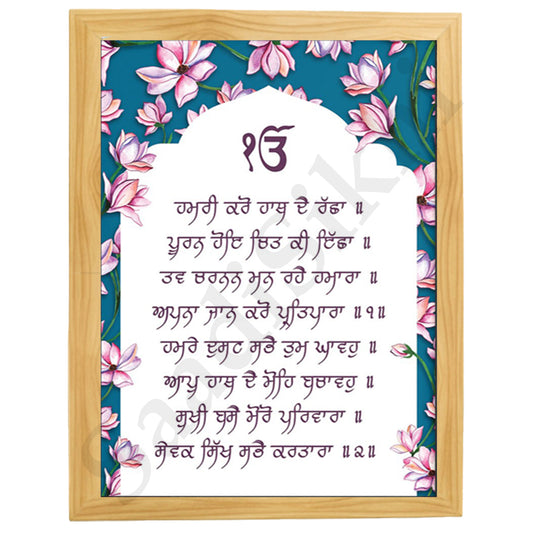 ੴ
ਹਮਰੀ ਕਰੋ ਹਾਥ ਦੈ ਰੱਛਾ ॥
ਪੂਰਨ ਹੋਇ ਚਿਤ ਕੀ ਇੱਛਾ ॥
ਤਵ ਚਰਨਨ ਮਨ ਰਹੈ ਹਮਾਰਾ ॥
ਅਪਨਾ ਜਾਨ ਕਰੋ ਪ੍ਰਤਿਪਾਰਾ ॥੧॥
ਹਮਰੇ ਦੁਸਟ ਸਭੈ ਤੁਮ ਘਾਵਹੁ ॥
ਆਪੁ ਹਾਥ ਦੈ ਮੋਹਿ ਬਚਾਵਹੁ ॥
ਸੁਖੀ ਬਸੈ ਮੋਰੋ ਪਰਿਵਾਰਾ ॥
ਸੇਵਕ ਸਿੱਖ ਸਭੈ ਕਰਤਾਰਾ ॥੨॥